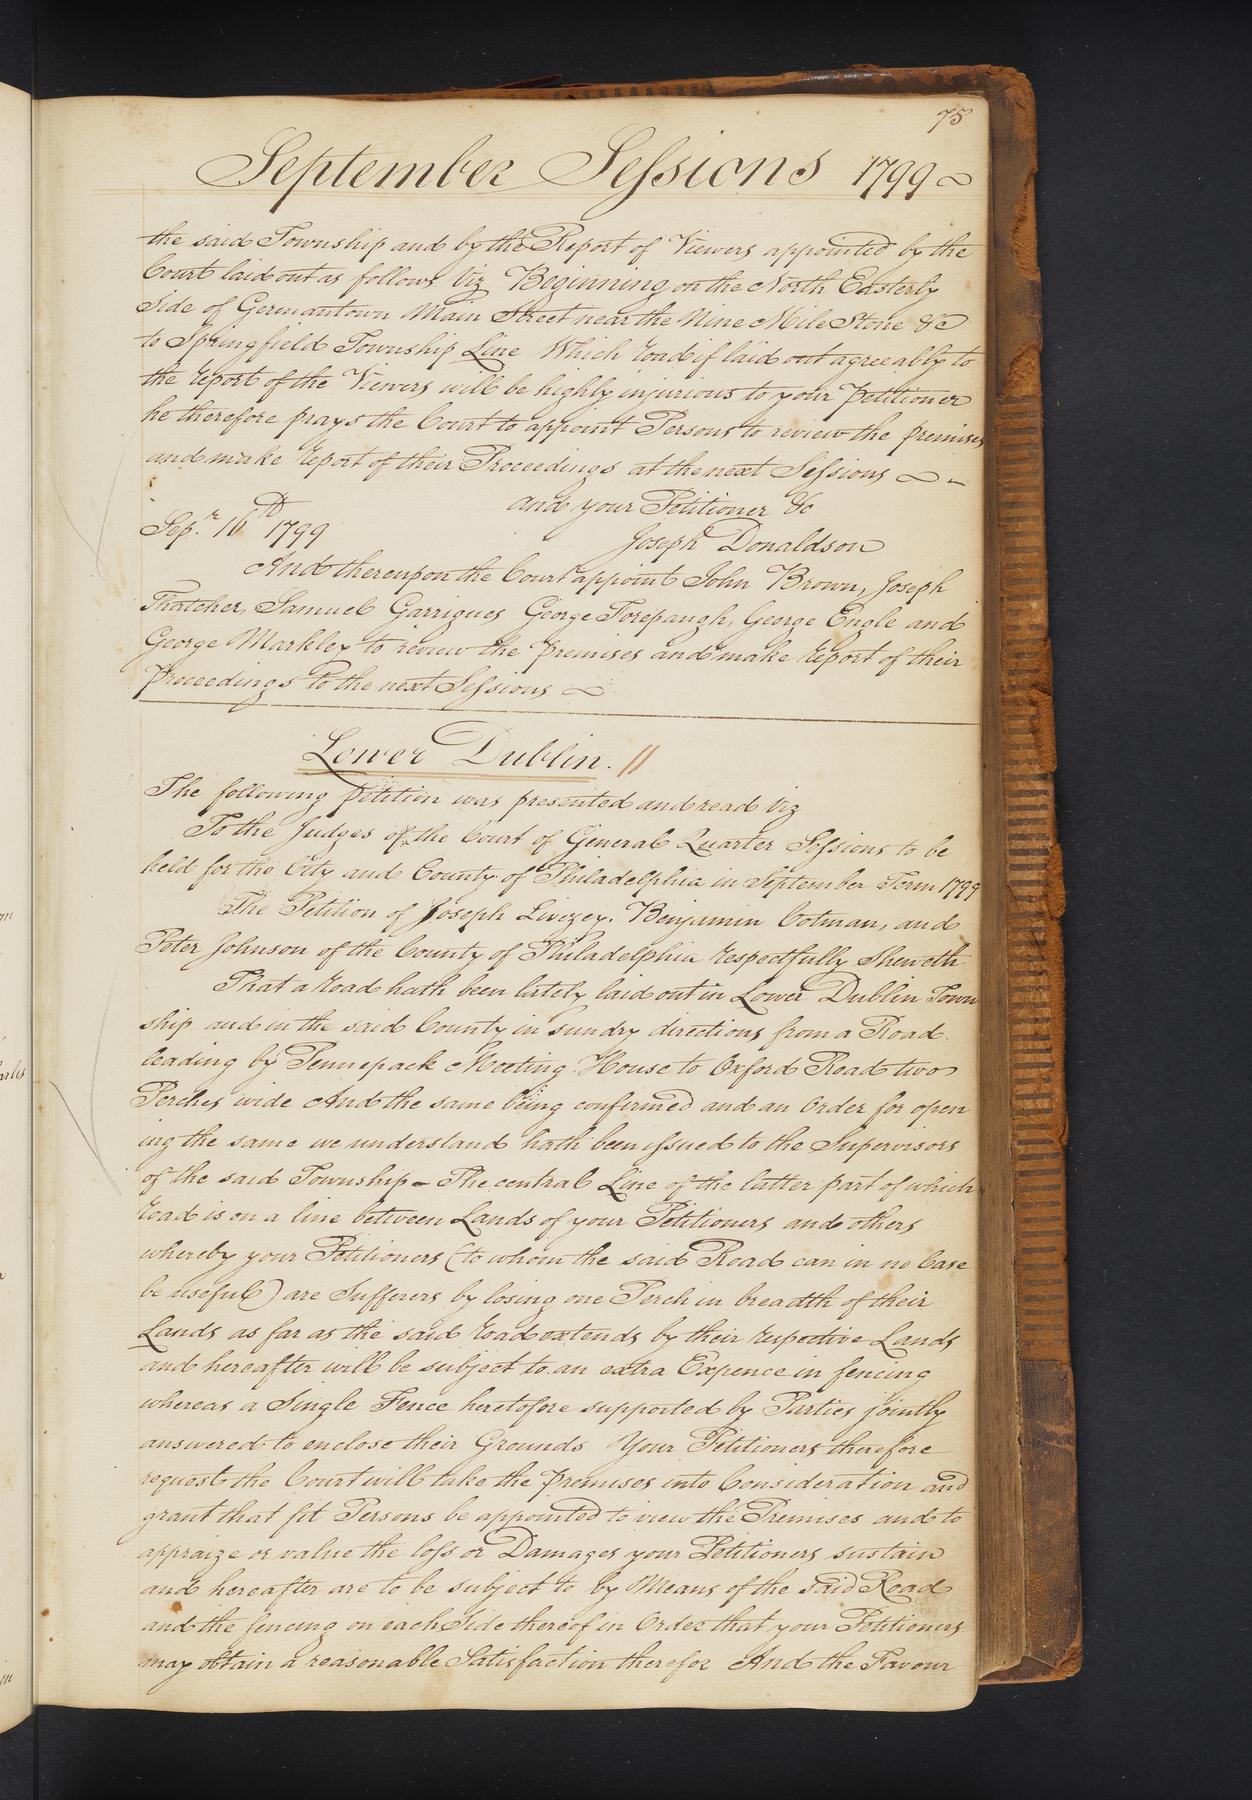 75
September Sessions 1799
the said Township and by the Report of Viewers appointed by the
Court laid out as follows Viz Beginning on the North Easterly
side of Germantown Main Street near the Nine Mile Stone &c
to Springfield Township Line Which road if laid out agreeably to
the report of the Viewers will be highly injurious to your Petitioner
he therefore prays the Court to appoint Persons to review the premises
and make report of their Proceedings at the next Sessions
and your Petitioner &c
Sepr. 16th 1799
Joseph Donaldson
And thereupon the Court appoint John Brown, Joseph
Thatcher, Samuel Garrigues George Forepaugh, George Engle and
George Markley to review the premises and make report of their
Proceedings to the next Sessions
Lower Dublin. //
The following petition was presented and read Viz
To the Judges of the Court of General Quarter Sessions to be
held for the City and County of Philadelphia in September Term 1799
The Petition of Joseph Livezey. Benjamin Cotman, and
Peter Johnson of the County of Philadelphia respectfully Sheweth
That a Road hath been lately laid out in Lower Dublin Town
ship and in the said County in sundry directions from a Road
leading by Pennepack Meeting House to Oxford Road two
Perches wide And the same being confirmed and an Order for open
ing the same we understand hath been issued to the Supervisors
of the said Township - The central Line of the latter part of which
road is on a line between Lands of your Petitioners and others
whereby your Petitioners (to whom the said Road can in no Case
be useful) are Sufferers by losing one Perch in breadth of their
Lands as far as the said road extends by their respective Lands
and hereafter will be subject to an extra Expence in fencing
whereas a Single Fence heretofore supported by Parties jointly
answered to enclose their Grounds Your Petitioners therefore
request the Court will take the premises into Consideration and
grant that fit Persons be appointed to view the Premises and to
appraize or value the loss or Damages your Petitioners sustain
and hereafter are to be subject to by Means of the said Road
and the fencing on each Side thereof in Order that your Petitioners
may obtain a reasonable Satisfaction therefor And the Favour